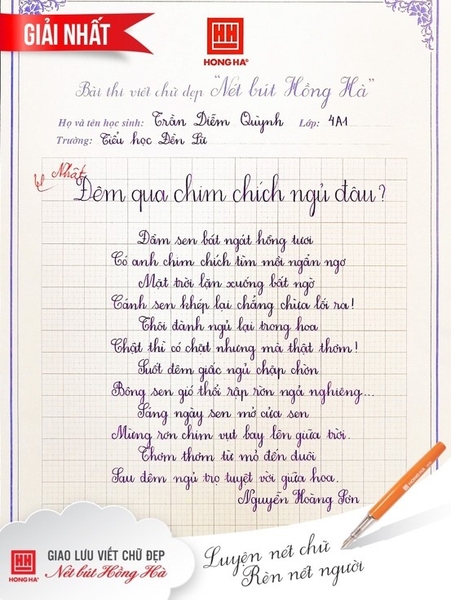 GIẢI NHẤT
HH
HONG HA®
Bài thi viết chữ đẹp "Nét bút Hồng Hà"
Họ và tên học sinh: Trần Diễm Quỳnh Lớp: 4A1
Trường: Tiểu học Đền Lừ
Nhất
Đêm qua chim chích ngủ đâu?
Đầm sen bát ngát hồng tươi
Có anh chim chích tìm mồi ngẩn ngơ
Mặt trời lặn xuống bất ngờ
Cánh sen khép lại chẳng chừa lối ra!
Thôi đành ngủ lại trong hoa
Chật thì có chật nhưng mà thật thơm!
Suốt đêm giấc ngủ chập chờn
Bông sen gió thổi rập rờn ngả nghiêng...
Sáng ngày sen mở cửa sen
Mừng rơn chim vụt bay lên giữa trời.
Thơm thơm từ mỏ đến đuôi
Sau đêm ngủ trọ tuyệt vời giữa hoa.
Nguyễn Hoàng Sơn
HH
HONG HA®
GIAO LƯU VIẾT CHỮ ĐẸP
Nét bút Hồng Hà
Luyện nét chữ
Rèn nét người